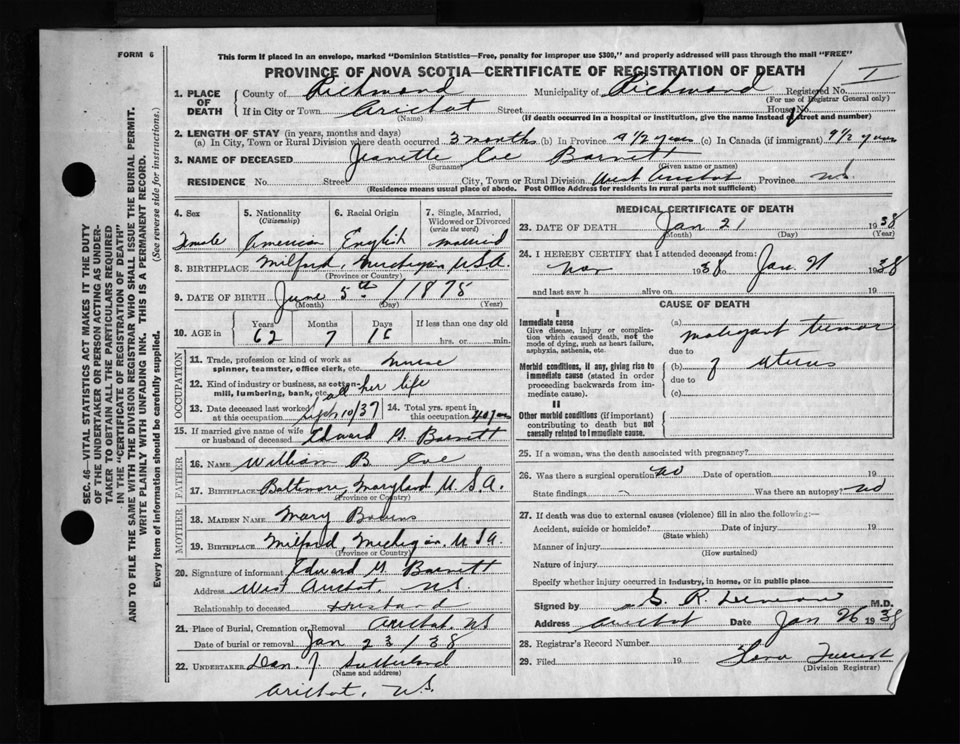 FORM 6
This form if placed in an envelope, marked "Dominion Statistics—Free, penalty for improper use $300," and properly addressed will pass through the mail "FREE"
PROVINCE OF NOVA SCOTIA—CERTIFICATE OF REGISTRATION OF DEATH
1. PLACE OF DEATH County of Richmond Municipality of Richmond Registered No. 1
(For use of Registrar General only)
If in City or Town Arichat Street House No.
(Name) (If death occurred in a hospital or institution, give the name instead of street and number)
2. LENGTH OF STAY (in years, months and days)
(a) In City, Town or Rural Division where death occurred 3 months (b) In Province 9 1/2 years (c) In Canada (if immigrant) 9 1/2 years
3. NAME OF DECEASED Jeanette Coe Barnett
(Surname) (Given name or names)
RESIDENCE No. Street City, Town or Rural Division West Arichat Province N.S.
(Residence means usual place of abode. Post Office Address for residents in rural parts not sufficient)
4. Sex Female
5. Nationality (Citizenship) American
6. Racial Origin English
7. Single, Married, Widowed or Divorced (write the word) married
8. BIRTHPLACE Milford, Michigan U.S.A.
(Province or Country)
9. DATE OF BIRTH June 5th 1875
(Month) (Day) (Year)
10. AGE in Years 62 Months 7 Days 16 If less than one day old hrs. or min.
OCCUPATION
11. Trade, profession or kind of work as spinner, teamster, office clerk, etc. nurse
12. Kind of industry or business, as cotton-mill, lumbering, bank, etc. all her life
13. Date deceased last worked at this occupation Sept 10/37
14. Total yrs. spent in this occupation 40 years
15. If married give name of wife or husband of deceased Edward M. Barnett
FATHER
16. NAME William B Coe
17. BIRTHPLACE Baltimore, Maryland U.S.A.
(Province or Country)
MOTHER
18. MAIDEN NAME Mary
19. BIRTHPLACE Milford, Michigan, U.S.A.
(Province or Country)
20. Signature of informant Edward M. Barnett
Address West Arichat, N.S.
Relationship to deceased Husband
21. Place of Burial, Cremation or Removal Arichat, N.S
Date of burial or removal Jan 23/38
22. UNDERTAKER Dan. J Sutherland
(Name and address)
Arichat, N.S.
MEDICAL CERTIFICATE OF DEATH
23. DATE OF DEATH Jan 21 1938
(Month) (Day) (Year)
24. I HEREBY CERTIFY that I attended deceased from:
Nov 19 to Jan. 21 1938
and last saw h alive on 19
CAUSE OF DEATH
I
Immediate cause
Give disease, injury or complication which caused death, not the mode of dying, such as heart failure, asphyxia, asthenia, etc.
(a) malignant tumor
due to
Morbid conditions, if any, giving rise to immediate cause (stated in order proceeding backwards from immediate cause).
(b) of uterus
due to
(c)
II
Other morbid conditions (if important) contributing to death but not causally related to immediate cause.
25. If a woman, was the death associated with pregnancy?
26. Was there a surgical operation? no Date of operation 19
State findings Was there an autopsy? no
27. If death was due to external causes (violence) fill in also the following:—
Accident, suicide or homicide? Date of injury 19
(State which)
Manner of injury
(How sustained)
Nature of injury
Specify whether injury occurred in industry, in home, or in public place
Signed by R. M.D.
Address Arichat Date Jan 26 1938
28. Registrar's Record Number
29. Filed 19
(Division Registrar)
SEC. 46—VITAL STATISTICS ACT MAKES IT THE DUTY OF THE UNDERTAKER OR PERSON ACTING AS UNDERTAKER TO OBTAIN ALL THE PARTICULARS REQUIRED IN THE "CERTIFICATE OF REGISTRATION OF DEATH" AND TO FILE THE SAME WITH THE DIVISION REGISTRAR WHO SHALL ISSUE THE BURIAL PERMIT.
WRITE PLAINLY WITH UNFADING INK. THIS IS A PERMANENT RECORD.
Every item of information should be carefully supplied. (See reverse side for instructions.)